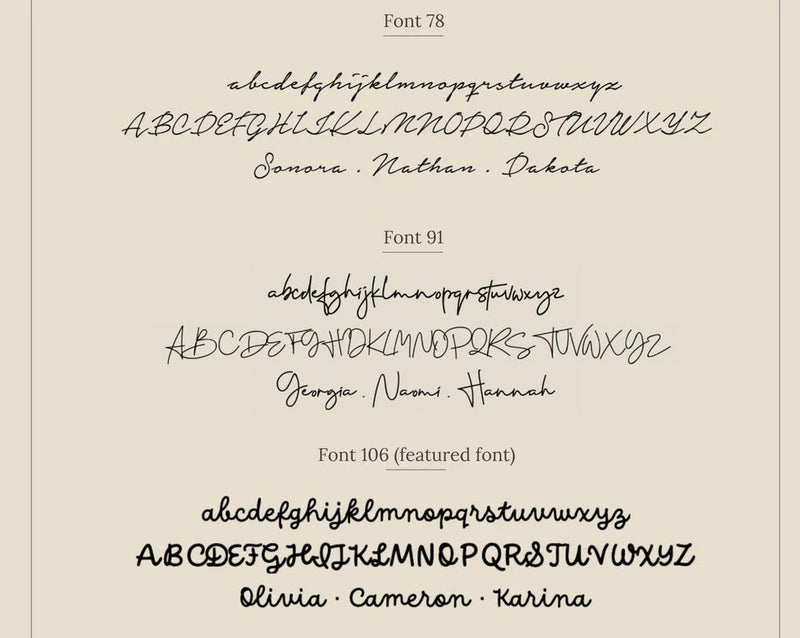 Font 78
abcdefghijklmnopqrstuvwxyz
ABCDEFGHIJKLMNOPQRSTUVWXYZ
Sonora . Nathan . Dakota
Font 91
abcdefghijklmnopqrstuvwxyz
ABCDEFGHIJKLMNOPQRSTUVWXYZ
Georgia . Naomi . Hannah
Font 106 (featured font)
abcdefghijklmnopqrstuvwxyz
ABCDEFGHIJKLMNOPQRSTUVWXYZ
Olivia · Cameron · Karina